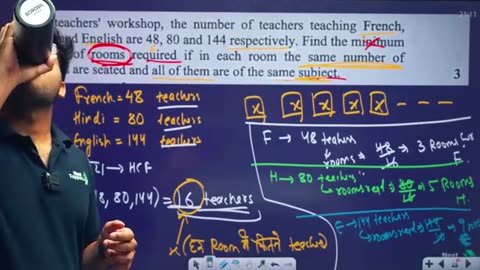 teachers' workshop, the number of teachers teaching French,
nd English are 48, 80 and 144 respectively. Find the minimum
of rooms required if in each room the same number of
are seated and all of them are of the same subject.
3
French = 48 teachers
Hindi = 80 teachers
English = 144 teachers
→ HCF
8, 80, 144) = 16 teachers
x (हर Room में कितने teachers)
x x x x x - - -
F → 48 teachers
rooms = 48/16 → 3 Rooms
F.
H → 80 teachers
rooms reqd = 80/16 → 5 Rooms
H.
→ 144 teachers
→ rooms reqd = 144/16 → 9
Next
21:11